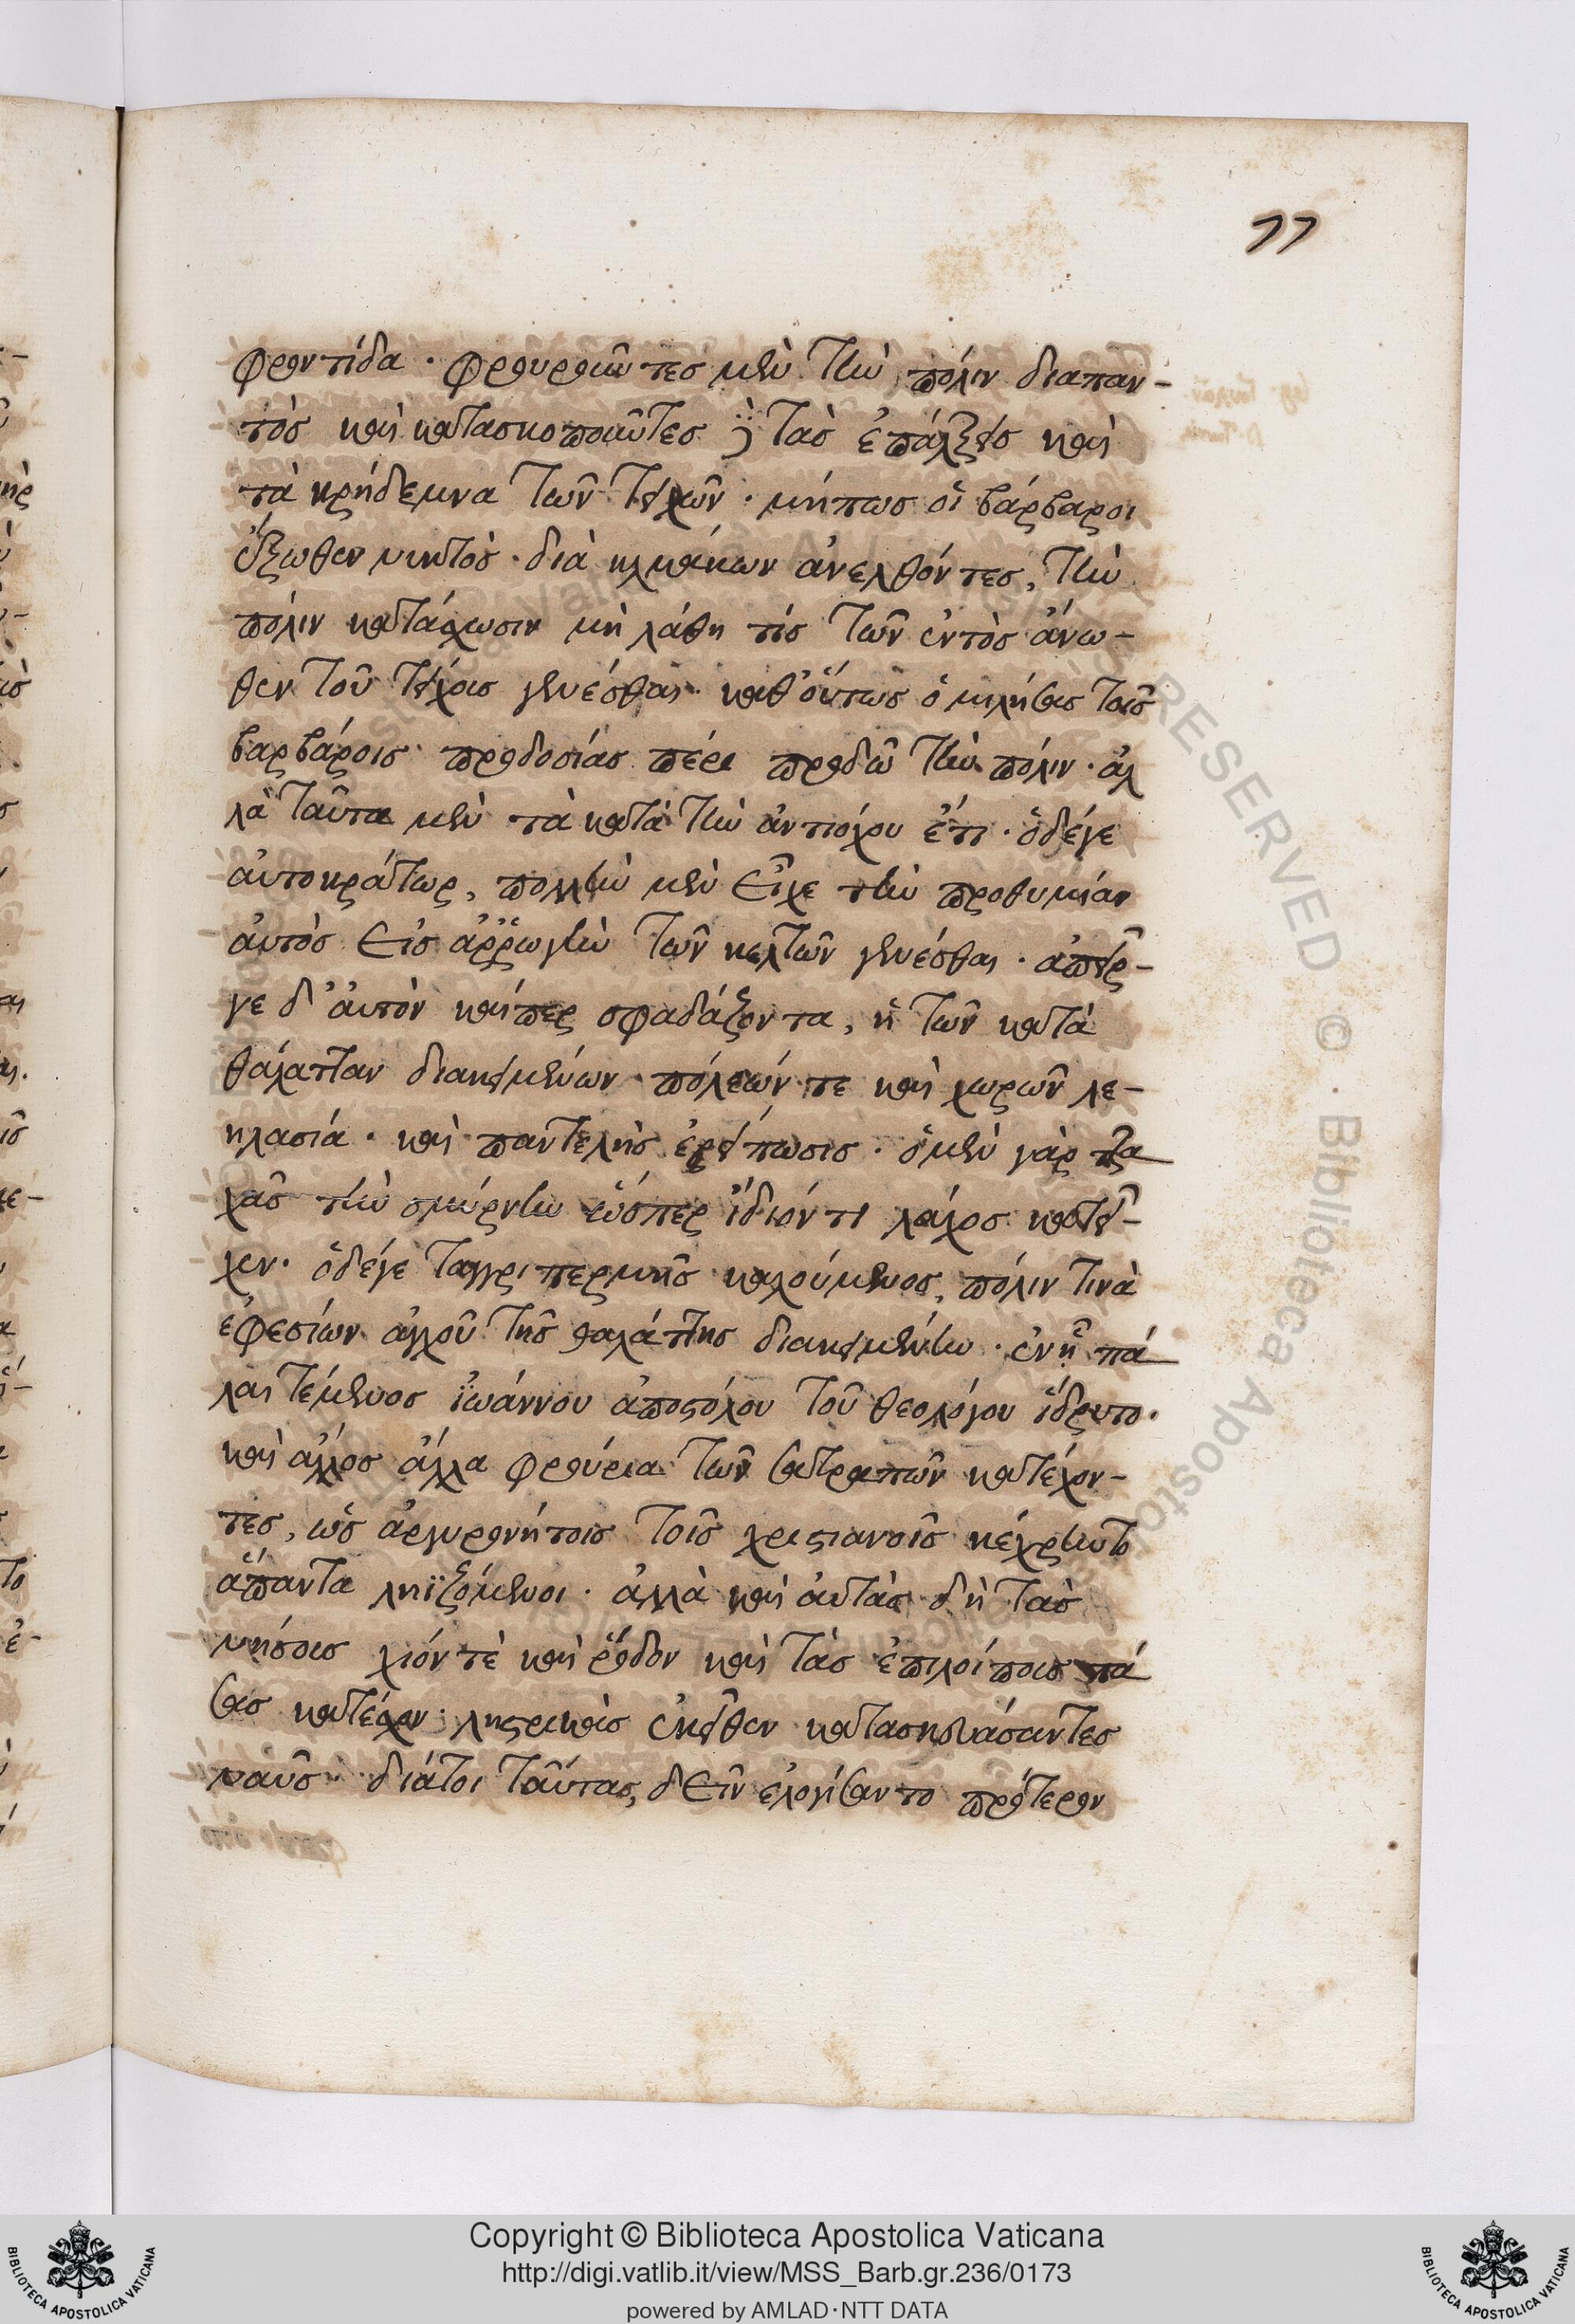 77
φροντίδα · φρουροῦντες μὲν τὴν πόλιν διαπαν-
τὸς καὶ κατασκοποῦντες δὲ τὰς ἐπάλξεις καὶ
τὰ κρήδεμνα τῶν τειχῶν · μήπως οἱ βάρβαροι
ἔξωθεν νυκτὸς · διὰ κλιμάκων ἀνελθόντες, τὴν
πόλιν κατάσχωσιν μὴ λάθη τίς τῶν ἐντὸς ἄνω-
θεν τοῦ τείχους γενέσθαι · καθ' οὕτως ὁμιλήσας τοῖς
βαρβάροις προδοσίας πέρι προδῶ τὴν πόλιν · ἀλ
λὰ ταῦτα μὲν τὰ κατὰ τὴν ἀντιόχου ἔτι · ὁ δέγε
αὐτοκράτωρ, πολλὴν μὲν εἶχε τὴν προθυμίαν
αὐτὸς εἰς ἀῤῥωγὴν τῶν κελτῶν γενέσθαι · ἀπεῖρ-
γε δ' αὐτὸν καίπερ σφαδάζοντα, ἡ τῶν κατὰ
θάλατταν διακειμένων πόλεών τε καὶ χωρῶν λε-
ηλασία · καὶ παντελὴς ἐρείπωσις · ὁ μὲν γὰρ τζα
χᾶς τὴν σμύρνην ὥσπερ ἴδιόν τι λάχος κατεῖ-
χεν · ὁ δέγε ταγγριπερμῆς καλούμενος, πόλιν τινὰ
ἐφεσίων ἀγχοῦ τῆς θαλάττης διακειμένην · ἐν ᾗ πά
λαι τέμενος ἰωάννου ἀποστόλου τοῦ θεολόγου ἵδρυτο ·
καὶ ἄλλος ἄλλα φρούρια τῶν σατραπῶν κατέχον-
τες, ὡς ἀργυρωνήτοις τοῖς χριστιανοῖς κέχρηντο
ἅπαντα ληϊζόμενοι · ἀλλὰ καὶ αὐτὰς δὴ τὰς
νήσους χίόν τὲ καὶ ῥόδον καὶ τὰς ἐπιλοίπους πά
σας κατέσχον · λῃστρικὰς ἐκεῖθεν κατασκευάσαντες
ναῦς · διάτοι ταῦτας, δεῖν ἐλογίσαντο πρότερον
Copyright © Biblioteca Apostolica Vaticana
http://digi.vatlib.it/view/MSS_Barb.gr.236/0173
powered by AMLAD·NTT DATA
BIBLIOTECA APOSTOLICA VATICANA
BIBLIOTECA APOSTOLICA VATICANA